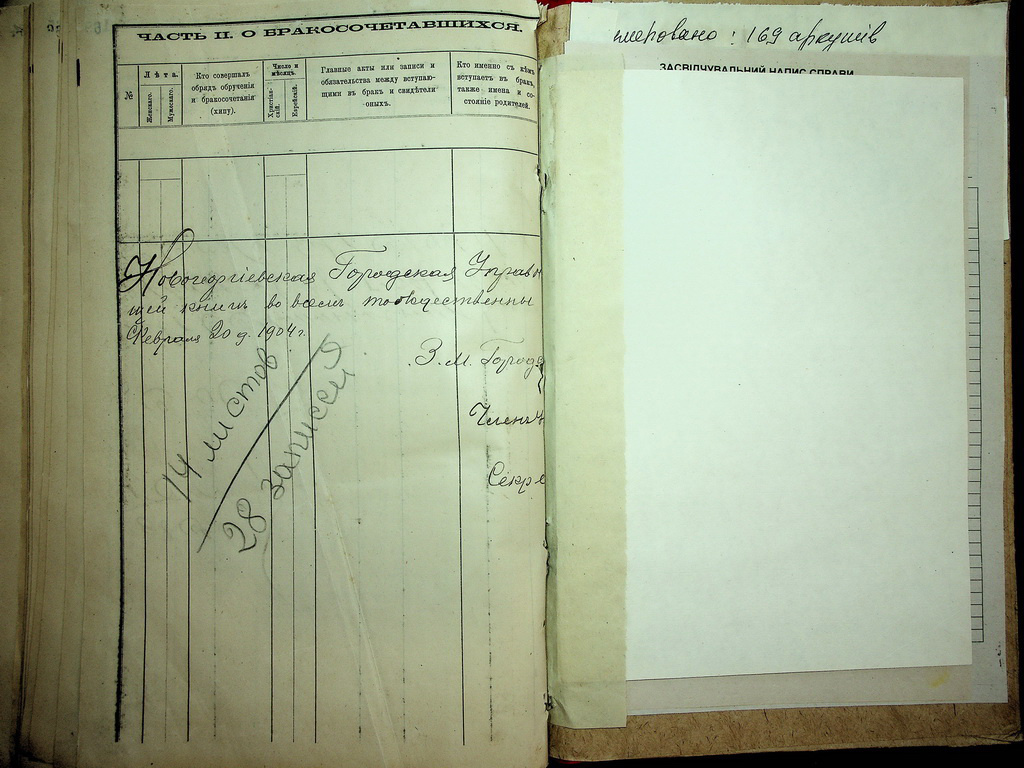 ЧАСТЬ II. О БРАКОСОЧЕТАВШИХСЯ.
№
Лѣта.
Женскаго.
Мужескаго.
Кто совершалъ
обрядъ обрученія
и бракосочетанія
(хипу).
Число и
мѣсяцъ.
Христіан-
скій.
Еврейскій.
Главные акты или записи и
обязательства между вступаю-
щими въ бракъ и свидѣтели
оныхъ.
Кто именно съ кѣмъ
вступаетъ въ бракъ,
также имена и со-
стояніе родителей.
Новогеоргіевская Городская Управ
щей книгѣ во всемъ тождественны
Февраля 20 д. 1904 г.
З. М. Город
Члены
Секре
14 листов
28 записей
: 169 аркушів
ЗАСВІДЧУВАЛЬНИЙ НАПИС СПРАВИ